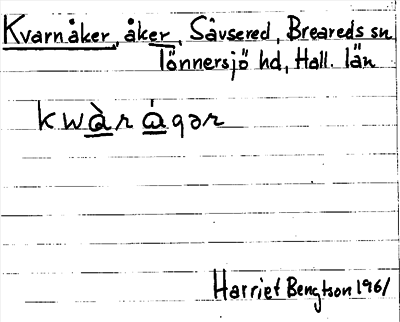 Kvarnåker, åker, Såvsered, Breareds sn
Tönnersjö hd, Hall. län
kwàrágər
Harriet Bengtson 1961